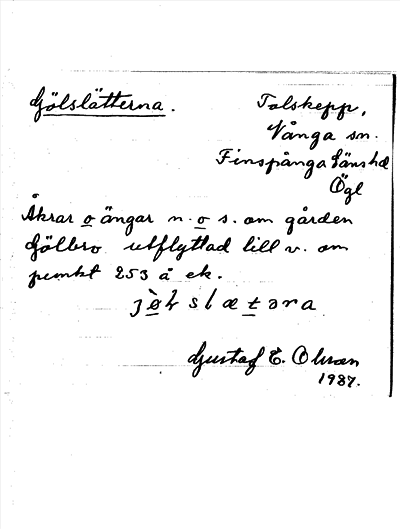 Gölslätterna. Tolskepp,
Vånga sn.
Finspånga läns hd
Ögl
Åkrar o ängar n. o s. om gården
Gölbro utflyttad till v. om
punkt 253 å ek.
Gustaf E. Olsson
1987.